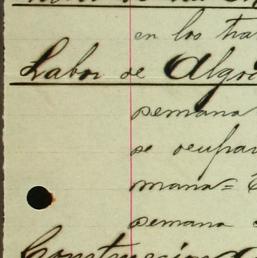 en los tra
Labor de Algod
semana
se ocupar
mana =
semana
Construccion